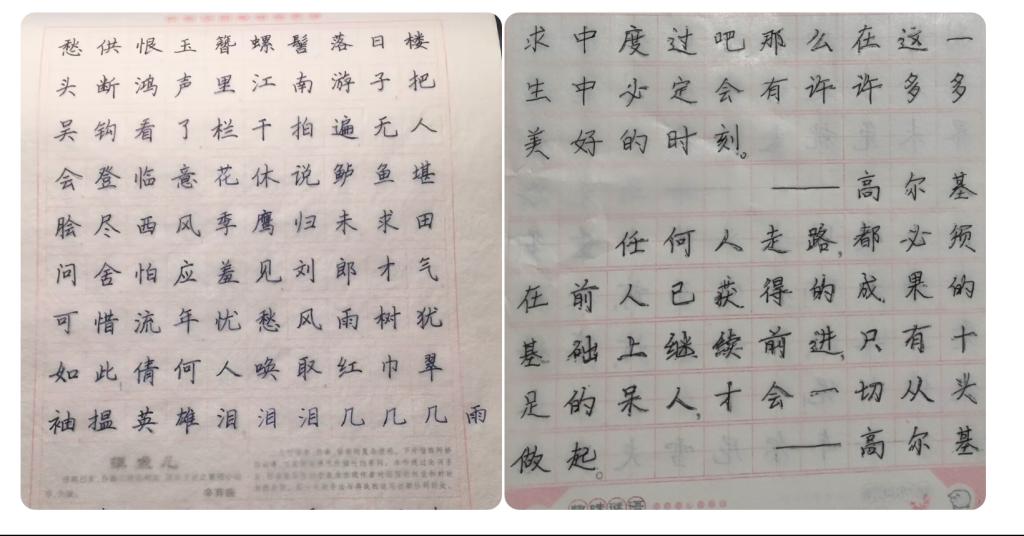 愁供恨玉簪螺髻落日楼
头断鸿声里江南游子把
吴钩看了栏干拍遍无人
会登临意花休说鲈鱼堪
脍尽西风季鹰归未求田
问舍怕应羞见刘郎才气
可惜流年忧愁风雨树犹
如此倩何人唤取红巾翠
袖揾英雄泪泪泪几几几雨
求中度过吧那么在这一
生中必定会有许许多多
美好的时刻。
——高尔基
任何人走路,都必须
在前人已获得的成果的
基础上继续前进,只有十
足的呆人,才会一切从头
做起。——高尔基